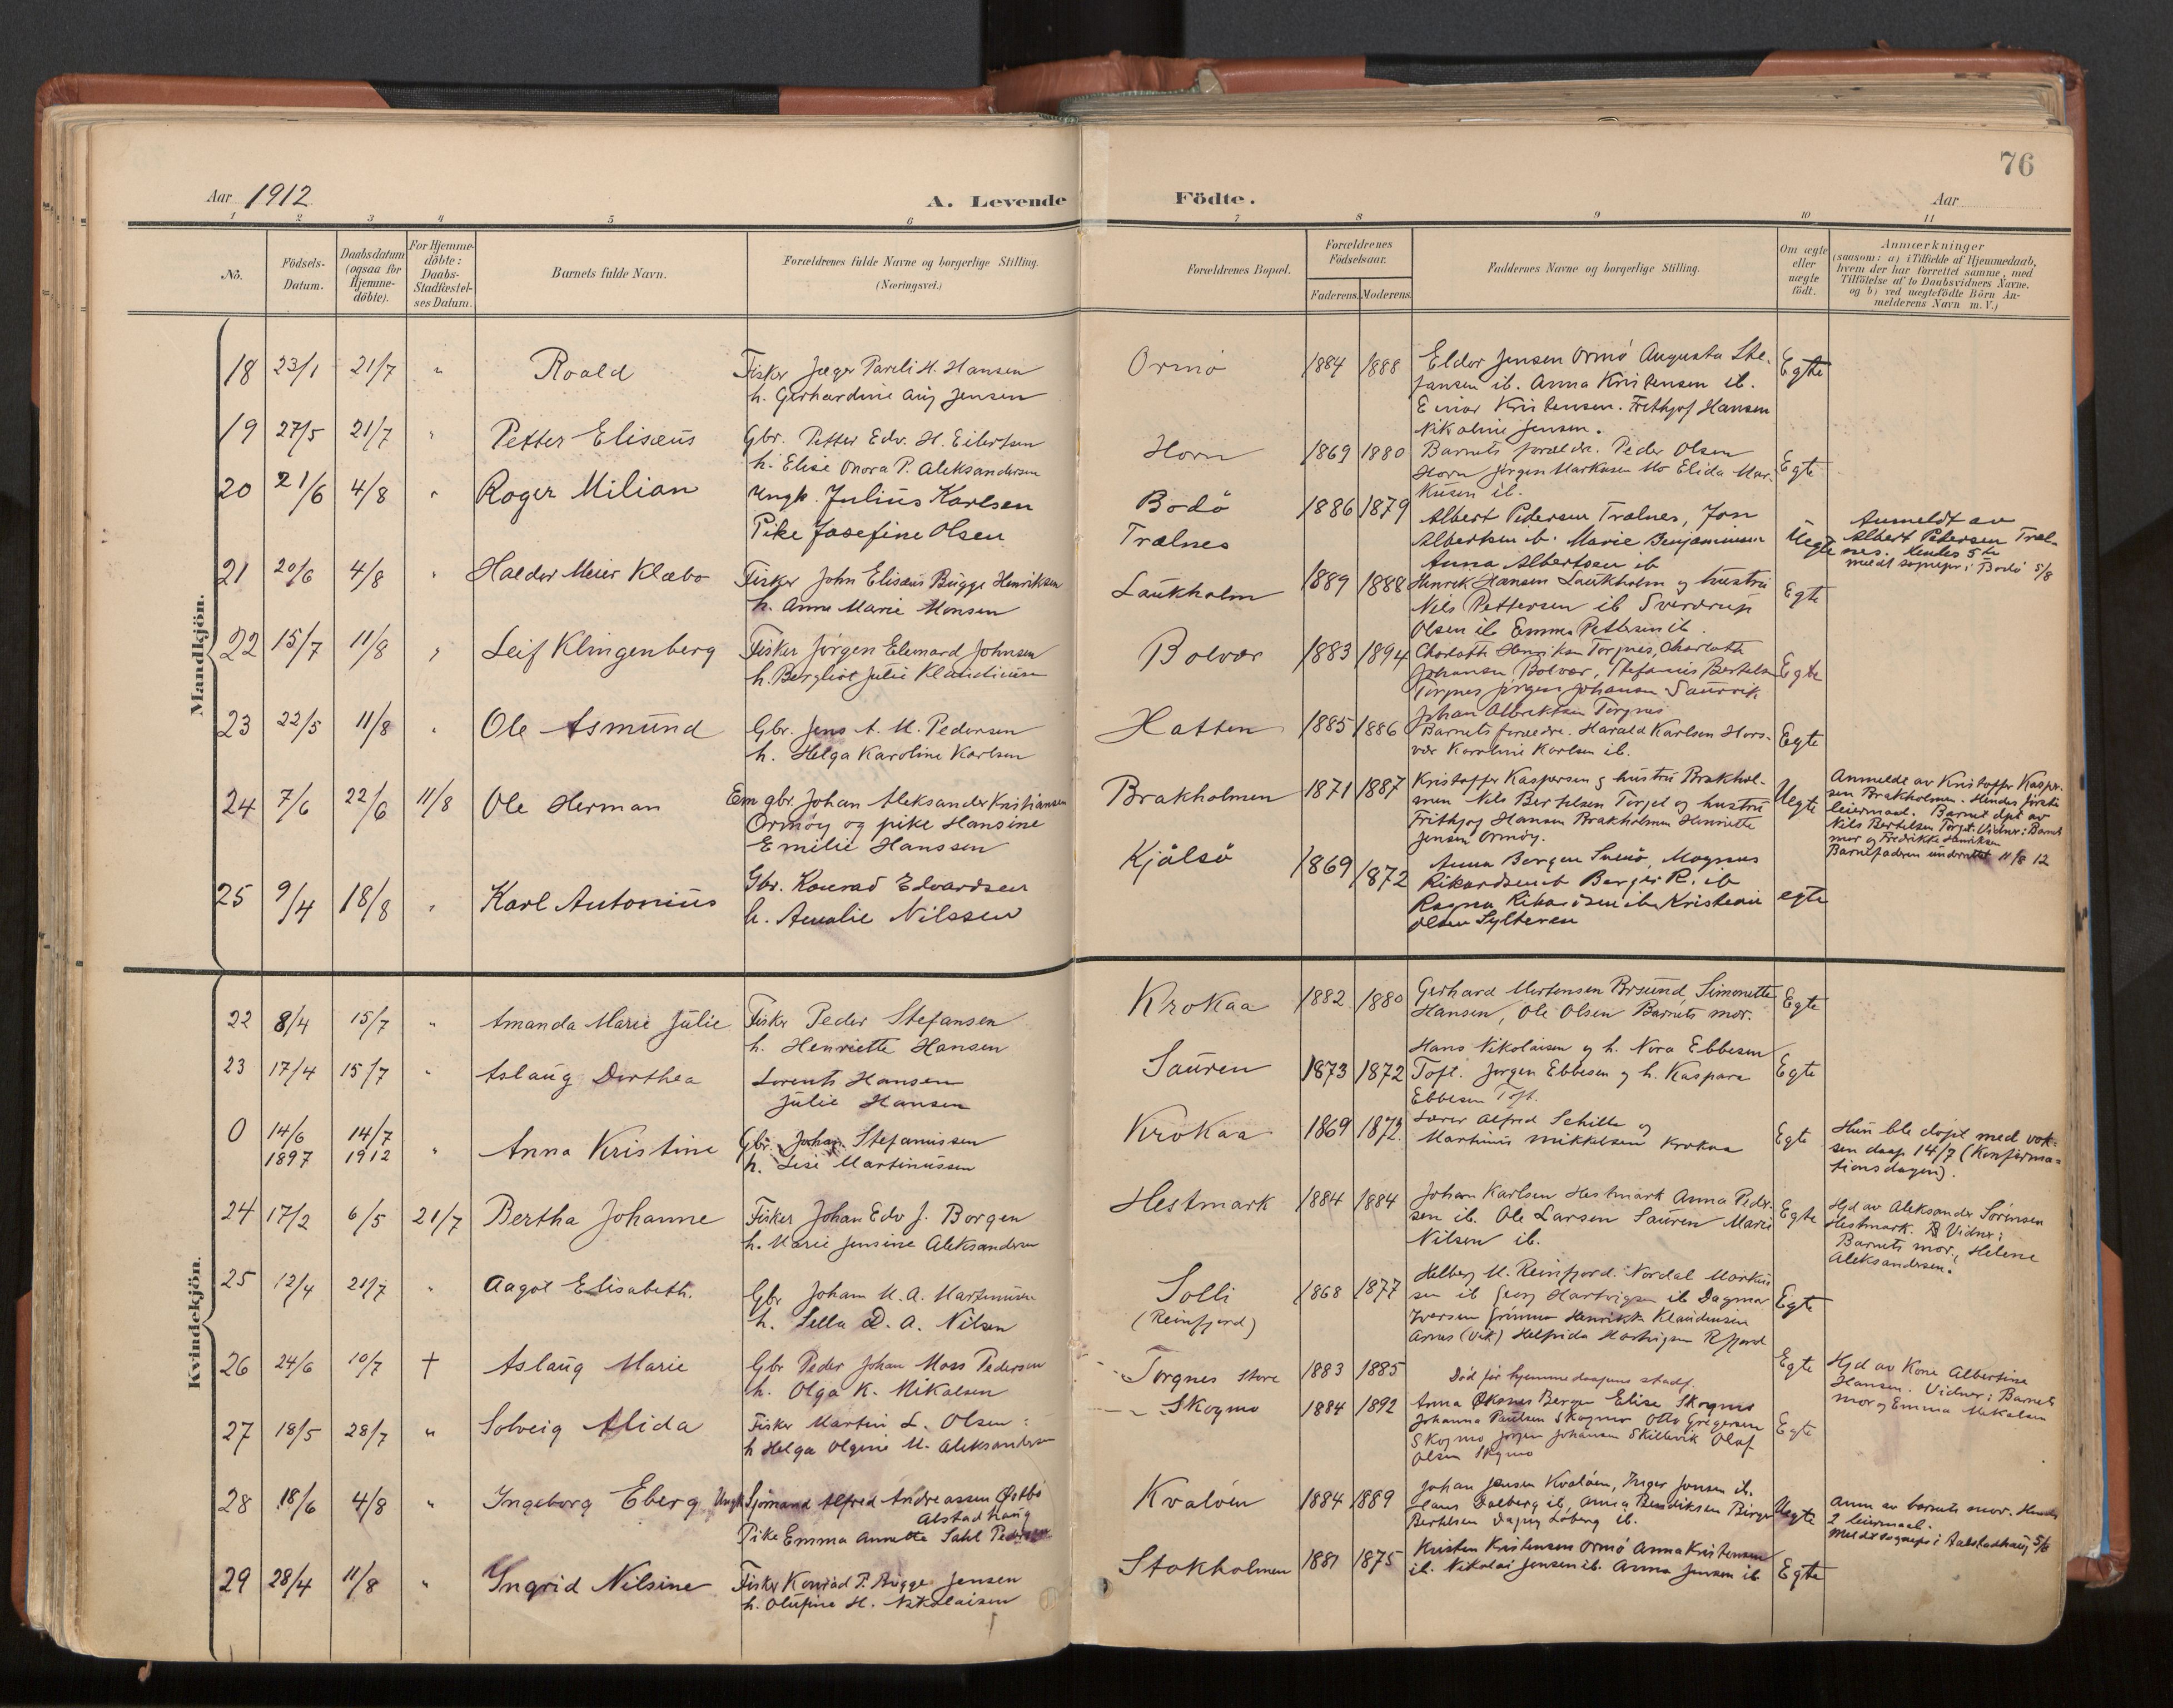 76
Aar 1912
A. Levende Födte.
Aar
1 2 3 4 5 6 7 8 9 10 11
No.
Födsels-Datum.
Daabsdatum (ogsaa for Hjemme-döbte).
For Hjemme-döbte: Daabs-Stadfæstel-ses Datum.
Barnets fulde Navn.
Forældrenes fulde Navne og borgerlige Stilling. (Næringsvei.)
Forældrenes Bopæl.
Forældrenes Födselsaar.
Faderens. Moderens.
Faddernes Navne og borgerlige Stilling.
Om ægte eller uægte födt.
Anmærkninger
(saasom: a) i Tilfælde af Hjemmedaab,
hvem der har forrettet samme, med
Tilföielse af to Daabsvidners Navne.
og b) ved uægtefödte Börn An-
melderens Navn m. V.)
Mandkjön.
18 23/1 21/7 " Roald
Fisker Jæger Pareli H. Hansen
h. Gerhardine Aug Jensen
Ormö 1884 1888
Eldor Jensen Ormö Augusta Ste-
fansen ib. Anna Kristensen ib.
Einar Kristensen. Frithjof Hansen
Nikoline Jensen.
Egte
19 27/5 21/7 " Petter Elisæus
Gbr. Petter Edv. H. Eilertsen
h. Elise Onora P. Aleksandersen
Horn 1869 1880
Barnets forældr. Peder Olsen
Horn Jörgen Markusen Mo Elida Mar-
kusen ib.
Egte
20 21/6 4/8 " Roger Milian
Ungk. Julius Karlsen
Pike Josefine Olsen
Bodö
Trælnes
1886 1879
Albert Pedersen Trælnes, Jon
Albertsen ib. Marie Benjaminsen
Anna Albertsen ib
Uegte
Anmeldt av
Albert Petersen Træl-
nes. Hendes 5te
meldt sognepr. i Bodö 5/8
21 20/6 4/8 " Haldor Meier Klæbo
Fisker John Elisæus Bugge Henriksen
h. Anna Marie Monsen
Laukholm 1889 1888
Henrik Hansen Laukholm og hustru
Nils Pettersen ib Sverdrup
Olsen ib Emma Pettersen ib.
Egte
22 15/7 11/8 " Leif Klingenberg
Fisker Jörgen Elemard Johnsen
h. Bergliot Julie Klaudiussen
Bolvær 1883 1894
Charlotte Henriksen Torgnes, Charlotte
Johansen Bolvær, Stefanus Bertelsen
Torgnes Jörgen Johansen Saurvik
Johan Albrektsen Torgnes
Egte
23 22/5 11/8 " Ole Asmund
Gbr. Jens A. M. Pedersen
h. Helga Karoline Karlsen
Hatten 1885 1886
Barnets forældre. Harald Karlsen Hors-
vær Karoline Karlsen ib.
Egte
24 7/6 22/6 11/8 Ole Herman
Em gbr. Johan Aleksander Kristiansen
Ormöy og pike Hansine
Emilie Hanssen
Brakholmen 1871 1887
Kristoffer Kaspersen og hustru Brakhol-
men Nils Bertelsen Torget og hustru
Frithjof Hansen Brakholmen Henriette
Jensen Ormöy.
Uegte
Anmeldt av Kristoffer Kasper-
sen Brakholmen. Hendes förste
leiermaal. Barnet döpt av
Nils Bertelsen Torget. Vidner: Barnets
mor og Fredrikke Henriksen
Barnefaderen underrettet 11/8 12
25 9/4 18/8 " Karl Antonius
Gbr. Konrad Edvardsen
h. Amalie Nilssen
Kjälsö 1869 1872
Anna Borgen Sneiö, Magnus
Rikardsen ib Berger R. ib
Ragna Rikardsen ib, Kristian
Olsen Sylteren
egte
Kvindekjön.
22 8/4 15/7 " Amanda Marie Julie
Fisker Peder Stefansen
h. Henriette Hansen
Krokaa 1882 1880
Gerhard Mortensen Brsund, Simonette
Hansen, Ole Olsen Barnets mor.
Egte
23 17/4 15/7 " Aslaug Dorthea
Lorents Hansen
Julie Hansen
Sauren 1873 1872
Hans Nikolaisen og h. Nora Ebbesen
Toft. Jörgen Ebbesen og h. Kaspara
Ebbesen Toft.
Egte
0 14/6 1897 14/7 1912 " Anna Kristine
Gbr. Johan Stefanussen
h. Lise Martinussen
Krokaa 1869 1872.
Lærer Alfred Schille og
Martinus Mikkelsen Krokaa
Egte
Hun ble döpt med vok-
sen daap 14/7 (Konfirma-
tionsdagen).
24 17/2 6/5 21/7 Bertha Johanne
Fisker Johan Edv J. Borgen
h. Marie Jensine Aleksandersen
Hestmark 1884 1884
Johan Karlsen Hestmark Anna Peder-
sen ib. Ole Larsen Sauren Marie
Nilsen ib.
Egte
Hjd av Aleksander Sörensen
Hestmark. Vidner:
Barnets mor., Helene
Aleksandersen.
25 12/4 21/7 " Aagot Elisabeth.
Gbr Johan M. A. Martinusen
h. Sella D. A. Nilsen
Solli
(Reinfjord)
1868 1877
Helberg M. Reinfjord. Nordal Markus
sen ib Georg Hartvigsen ib Dagmar
Iversen Henrikke Klaudiusen
Arnes (Vik) Helfrida Hartvigsen Rfjord
Egte
26 24/6 10/7 † Aslaug Marie
Gbr Peder Johan Moss Pedersen
h. Olga K. Mikalsen
Torgnes Store 1883 1885
Död för hjemmedaapens stadf.
Egte
Hjd av Kone Albertine
Hansen. Vidner: Barnets
mor og Emma Mikalsen
27 18/5 28/7 " Solveig Alida
Fisker Martin L. Olsen
h Helga Olgine M. Aleksandersen
Skogmo 1884 1892
Anna Öksnes Bergen Elise Skogmo
Johanna Paulsen Skogmo Otto Gregersen
Skogmo Jörgen Johansen Skillevik Olaf
Olsen Skogmo
Egte
28 18/6 4/8 " Ingeborg Eberg
Ungk Sjömand Alfred Andreassen Östbö
Alstadhaug
Pike Emma Annette Sahl Pedersen
Kvalöen 1884 1889
Johan Jensen Kvalöen, Inger Jensen ib.
Hans Dalberg ib, Anna Bendiksen Birger
Bertelsen Dagny Loberg ib.
Uegte
Anm av barnets mor. Hendes
2 leiermaal.
Meldt sognepr i Aalstadhaug 5/8
29 28/4 11/8 " Ingrid Nilsine
Fisker Konrad P. Bugge Jensen
h. Olufine H. Nikolaisen
Stokholmen 1881 1875
Kristen Kristensen Ormö Anna Kristensen
ib. Nikolai Jensen ib. Anna Jensen ib
Egte